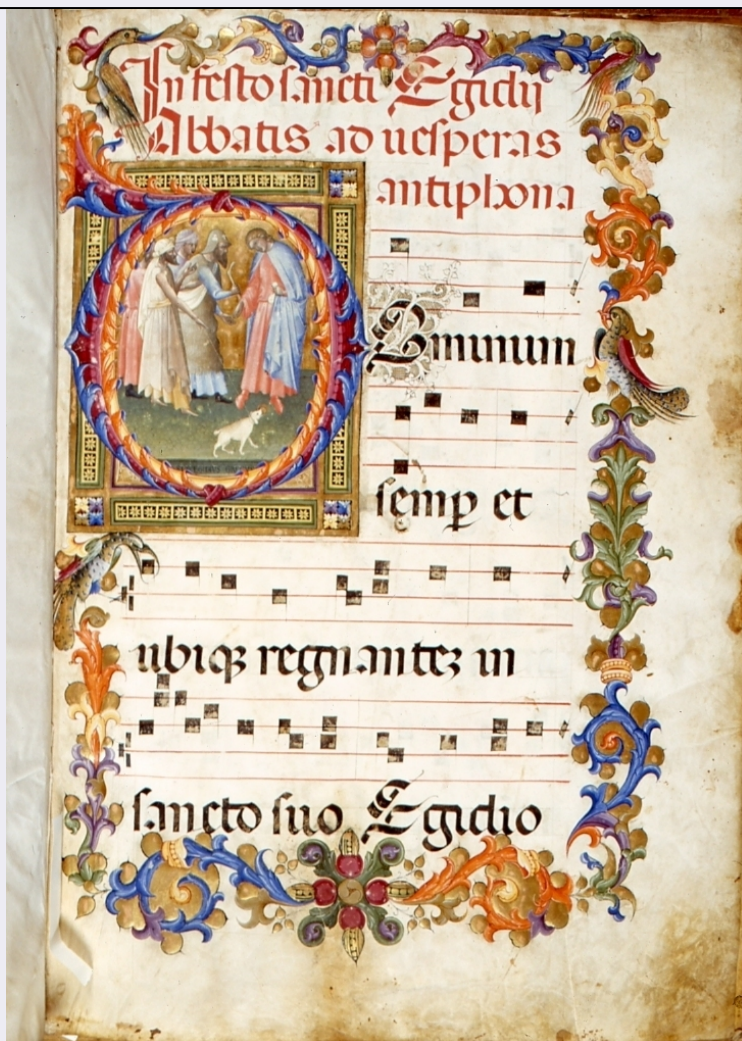 In festo sancti Egidij
Abbatis ad uesperas
antiphona
Dminum
semp et
ubiqꝫ regnanteꝫ in
sancto suo Egidio